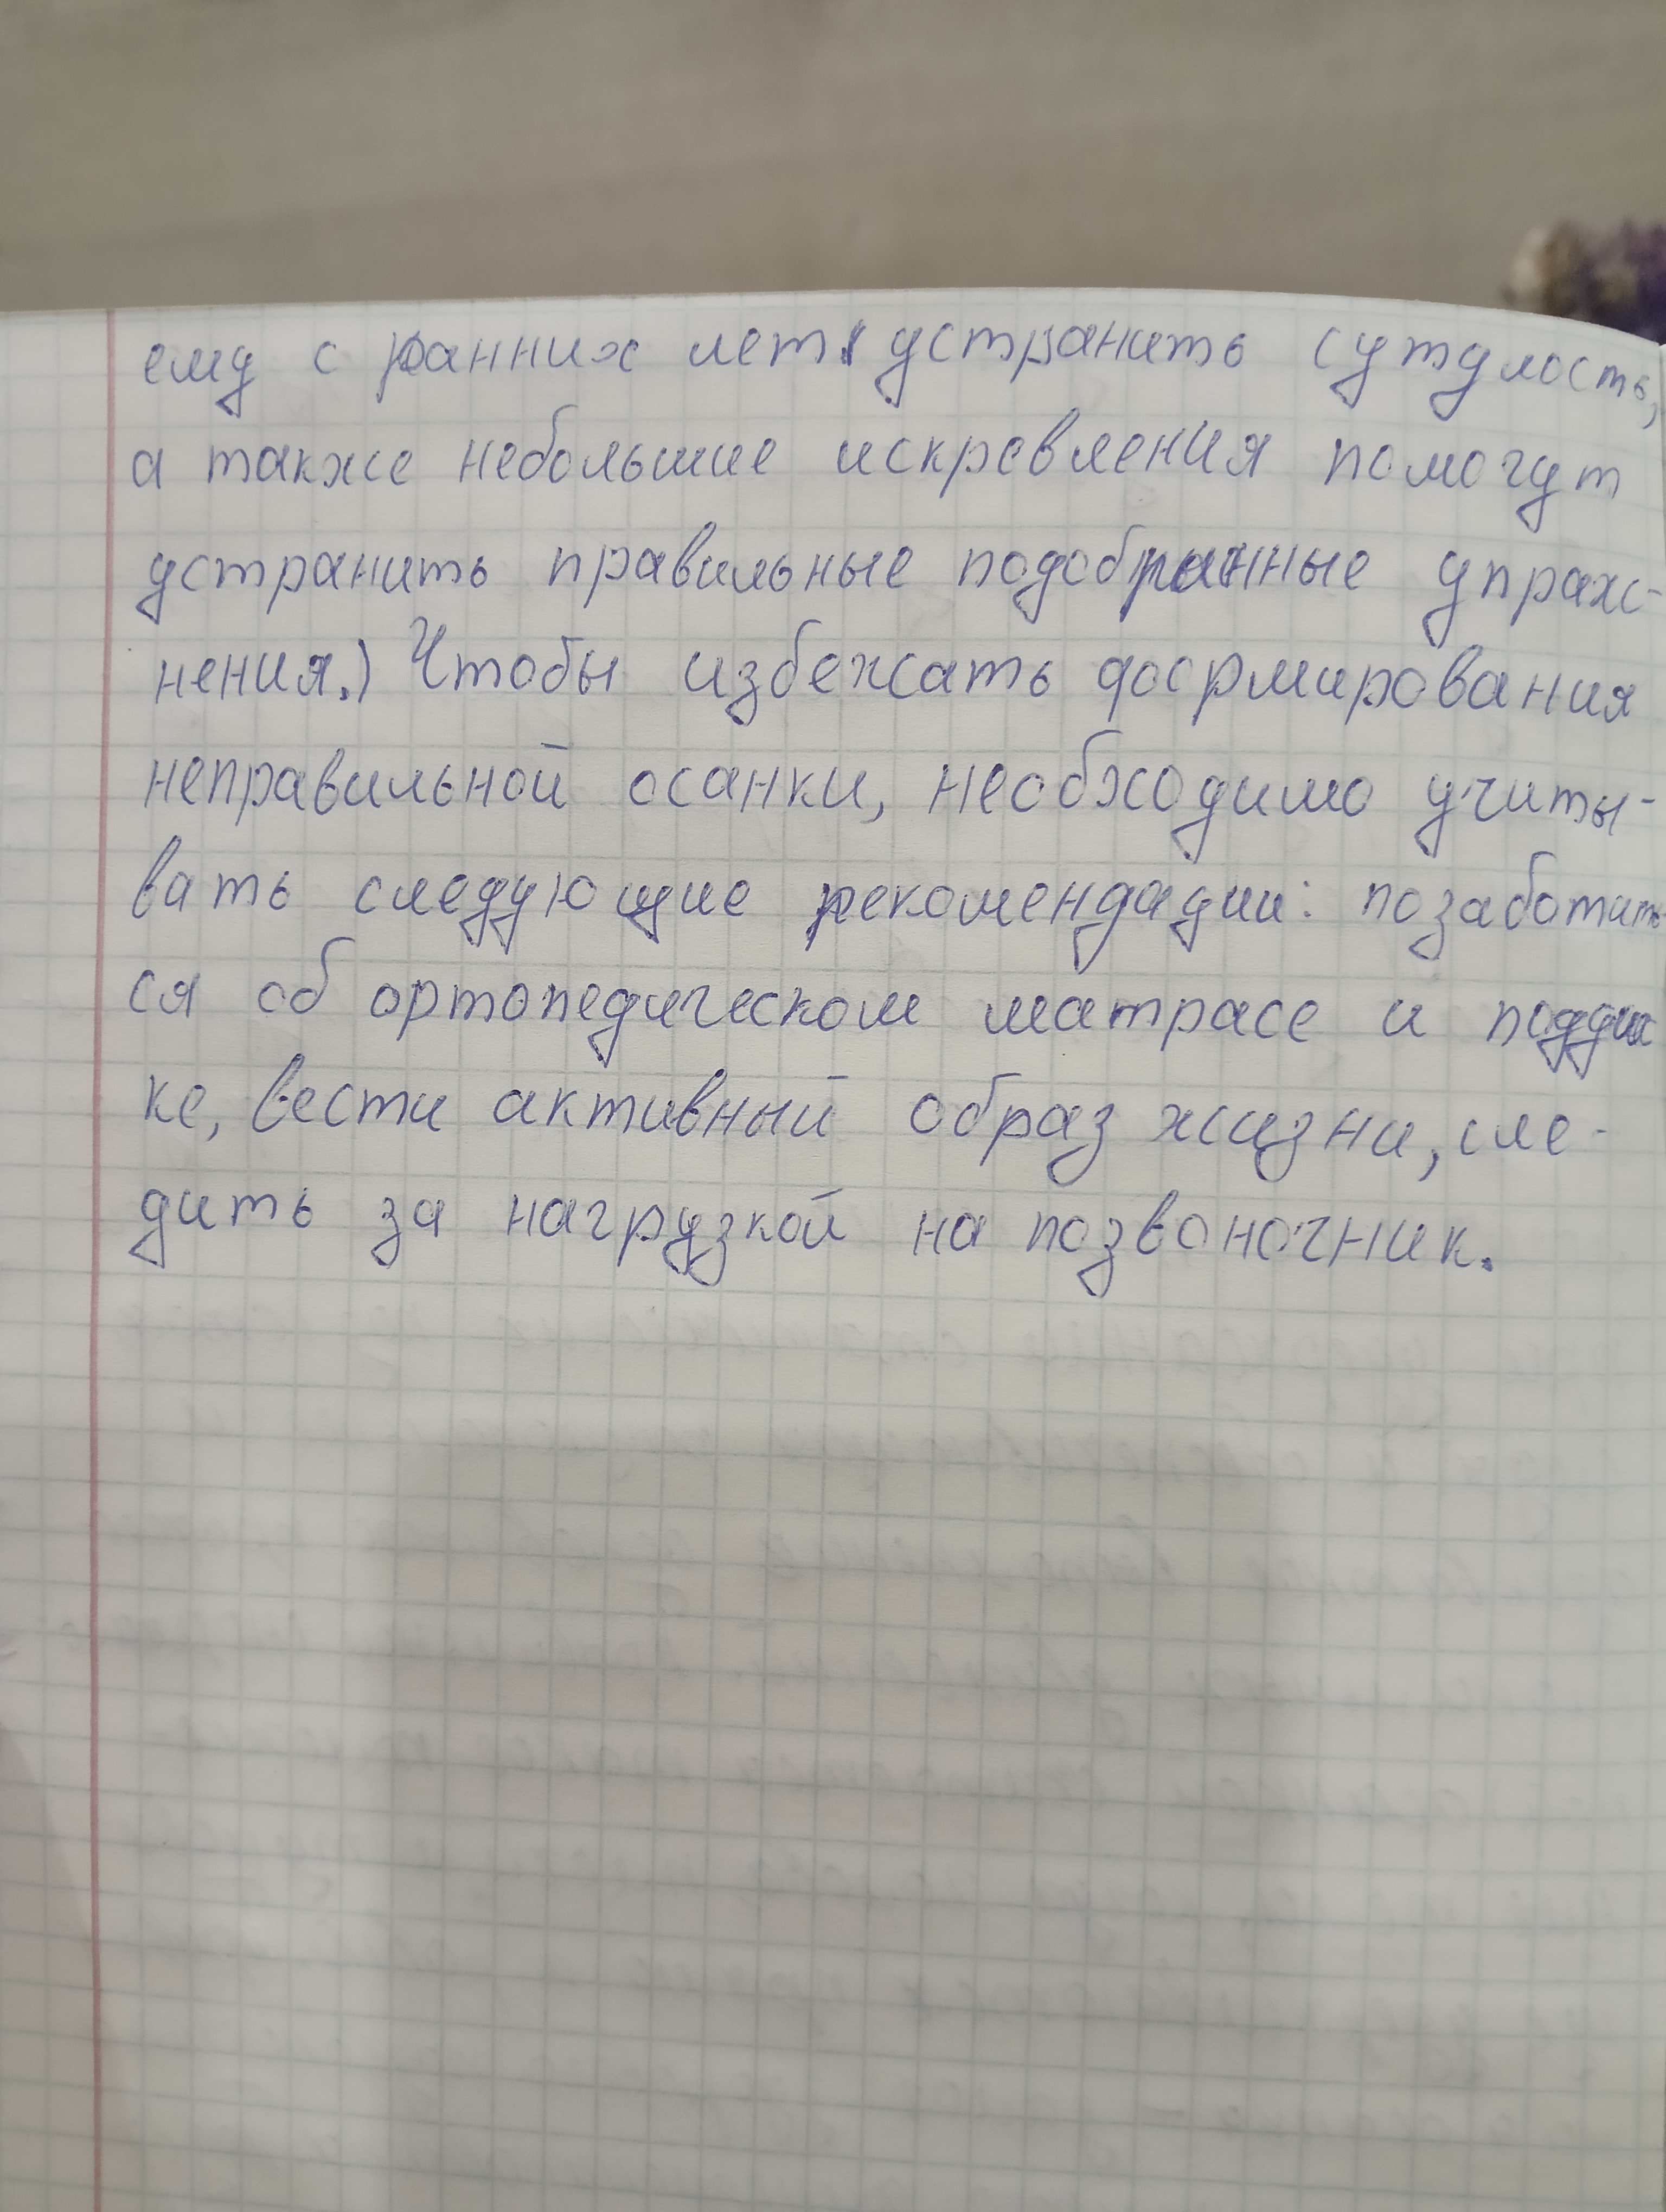 ему с ранних лет. устранить сутулость,
а также небольшие искревления помогут
устранить правильные подобранные упраж-
нения.) Чтобы избежать формирования
неправильной осанки, необходимо учиты-
вать следующие рекомендации: позаботить
ся об ортопедическом матрасе и
ке, вести активный образ жизни, сле-
дить за нагрузкой на позвоночник.